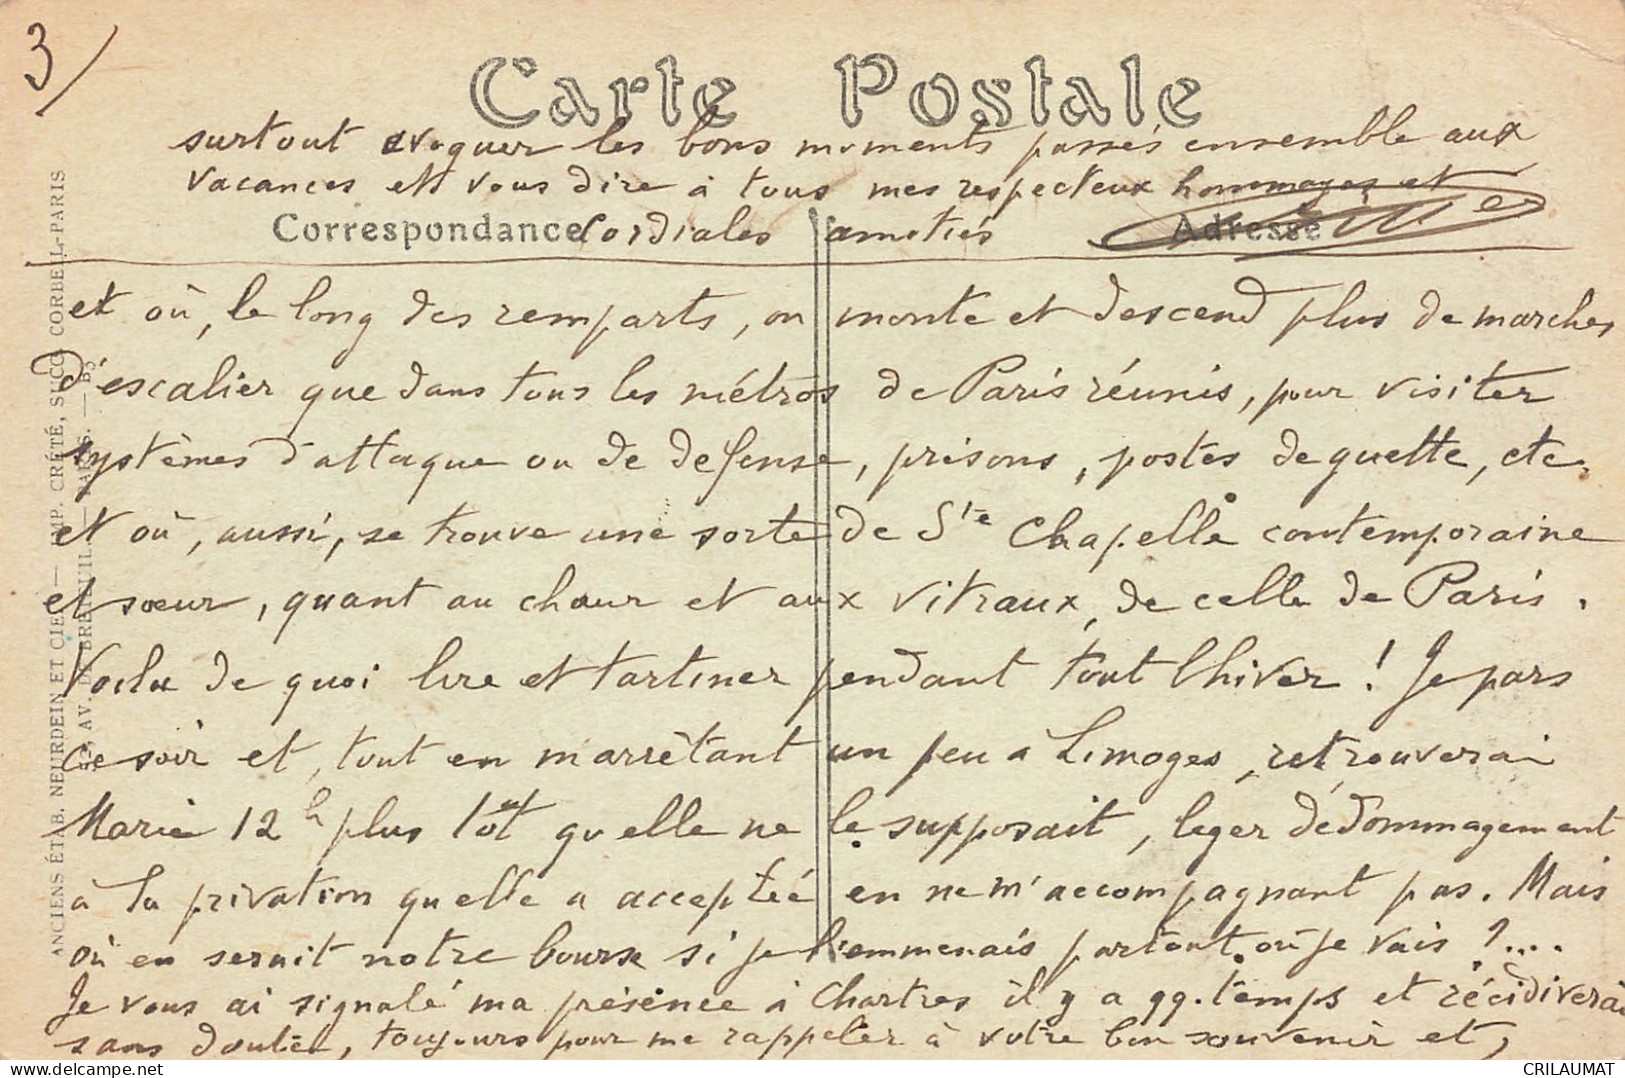 3/
Carte Postale
surtout evoquer les bons moments passés ensemble aux
vacances et vous dire à tous mes respecteux hommages et
Correspondance Cordiales amitiés Adresse
et où, le long des remparts, on monte et descend plus de marches
d'escalier que dans tous les métros de Paris réunis, pour visiter
systèmes d'attaque ou de defense, prisons, postes de guette, etc.
et où, aussi, se trouve une sorte de Ste Chapelle contemporaine
et sœur, quant au chœur et aux vitraux, de celle de Paris.
Voila de quoi lire et tartiner pendant tout l'hiver ! Je pars
ce soir et, tout en m'arrêtant un peu à Limoges, retrouverai
Marie 12h plus tôt qu'elle ne le supposait, leger dédommagement
à la privation qu'elle a acceptée en ne m'accompagnant pas. Mais
où en serait notre bourse si je l'emmenais partout où je vais ?...
Je vous ai signalé ma présence à Chartres il y a qq. temps et récidiverai
sans doute, toujours pour me rappeler à votre bon souvenir et,
ANCIENS ÉTAB. NEURDEIN ET CIE — IMP. CRÉTÉ, SUCC. CORBEIL-PARIS
52, AV. DE BRETEUIL — PARIS. — B5
CRILAUMAT